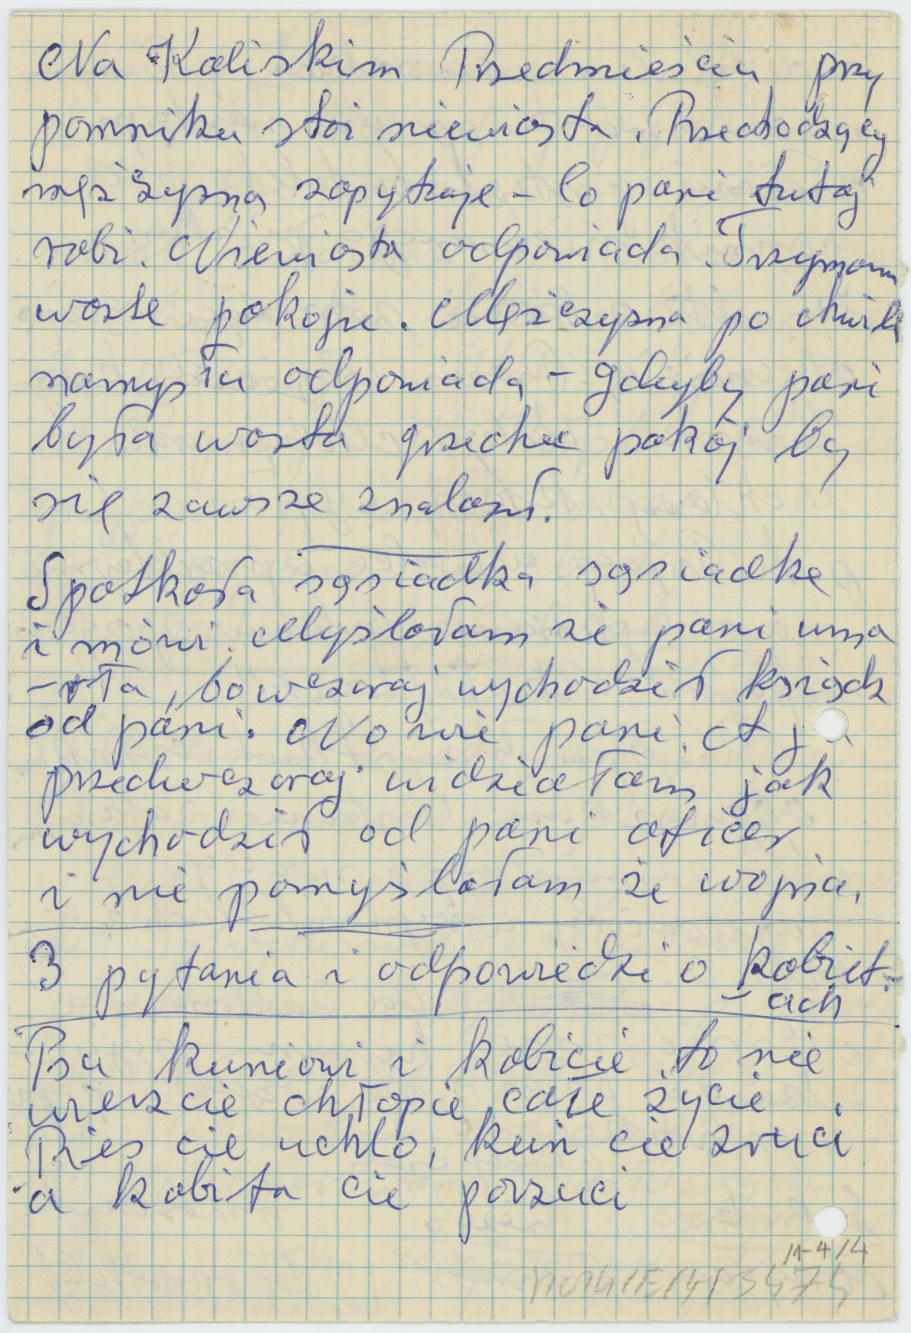 Na Kaliskim Przedmieściu przy
pomniku stoi niewiasta. Przechodzący
mężżyzna zapytuje – Co pani tutaj
robi. Niewiasta odpowiada. Trzymam
warte pokoju. Mężczyzna po chwili
namysłu odpowiada – gdyby pani
była warta grzechu pokój by
się zawsze znalazł.
Spotkała sąsiadka sąsiadkę
i mówi. Myślałam że pani uma
–rła, bo wczoraj wychodził ksiądz
od pani. No wie pani. A ja
przedwczoraj widziałam jak
wychodził od pani oficer
i nie pomyślałam że wojna.
3 pytania i odpowiedzi o kobiet-
– ach
Psu kuniowi i kobicie to nie
wierzcie chłopie całe życie
Pies cie uchlo, kuń cie zruci
a kobita cie porzuci
/1-4/4